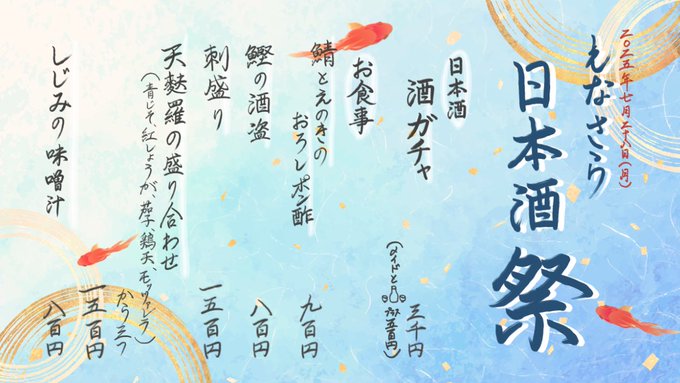 二〇二五年七月二十八日(月)
えなさら
日本酒祭
日本酒
酒ガチャ 三千円
(メイドと プラス五百円)
お食事
鯖とえのきの
おろしポン酢 九百円
鰹の酒盗 八百円
刺盛り 一五百円
天麩羅の盛り合わせ 一五百円
(青じそ、紅しょうが、茄子、鶏天、モッツァレラ)
から三つ
しじみの味噌汁 八百円